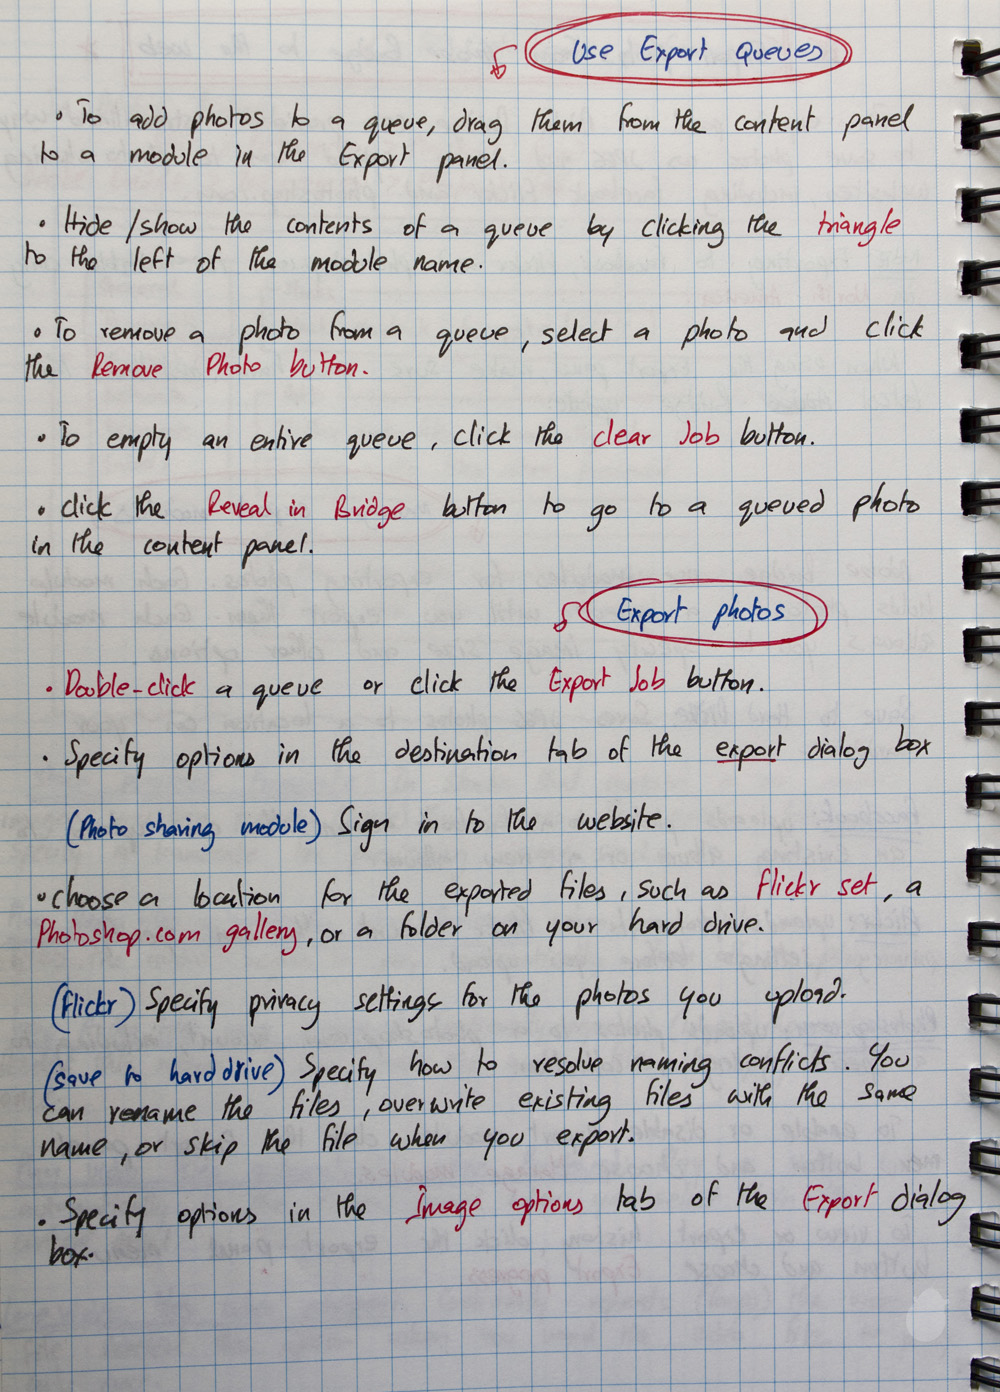 Use Export Queues
• To add photos to a queue, drag them from the content panel
to a module in the Export panel.
• Hide/show the contents of a queue by clicking the triangle
to the left of the module name.
• To remove a photo from a queue, select a photo and click
the Remove Photo button.
• To empty an entire queue, click the clear Job button.
• click the Reveal in Bridge button to go to a queued photo
in the content panel.
Export photos
• Double-click a queue or click the Export Job button.
• Specify options in the destination tab of the export dialog box
(Photo sharing module) Sign in to the website.
• choose a location for the exported files, such as flickr set, a
Photoshop.com gallery, or a folder on your hard drive.
(flickr) Specify privacy settings for the photos you upload.
(save to hard drive) Specify how to resolve naming conflicts. You
can rename the files, overwrite existing files with the same
name, or skip the file when you export.
• Specify options in the Image options tab of the Export dialog
box.